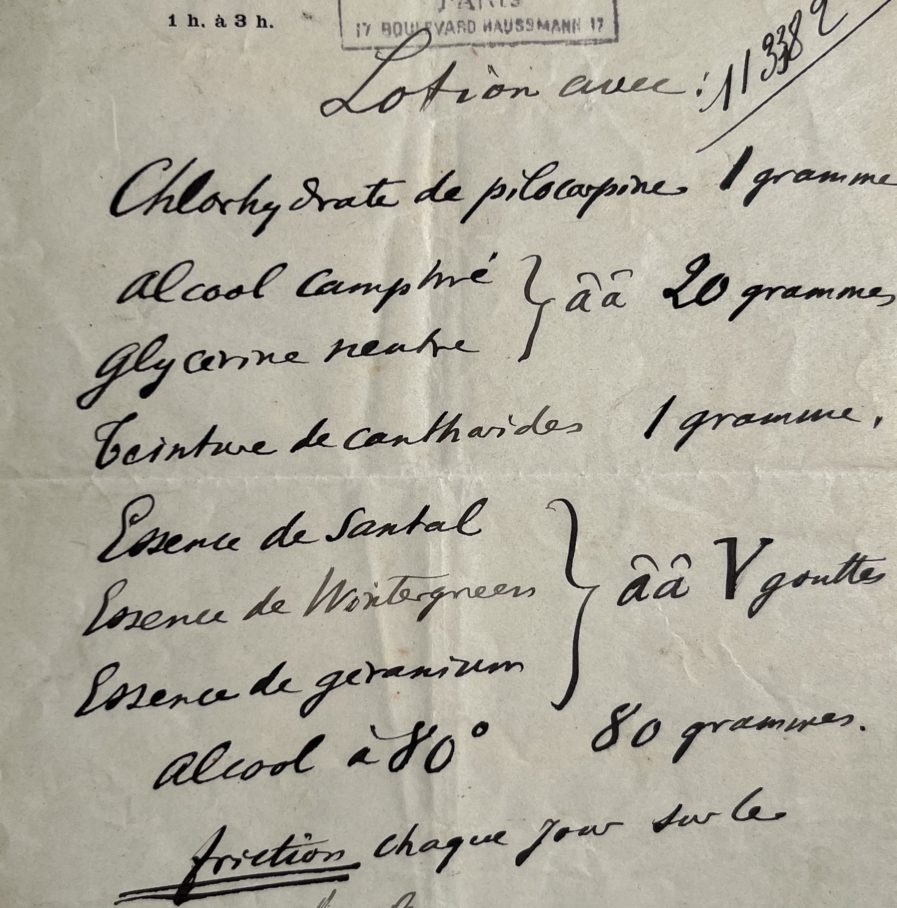 1 h. à 3 h.
PARIS
17 BOULEVARD HAUSSMANN 17
Lotion avec : 113382
Chlorhydrate de pilocarpine 1 gramme
Alcool camphré
Glycerine neutre } ââ 20 grammes
Teinture de cantharides 1 gramme.
Essence de Santal
Essence de Wintergreen } ââ V gouttes
Essence de géranium
Alcool à 80° 80 grammes.
friction chaque jour sur le